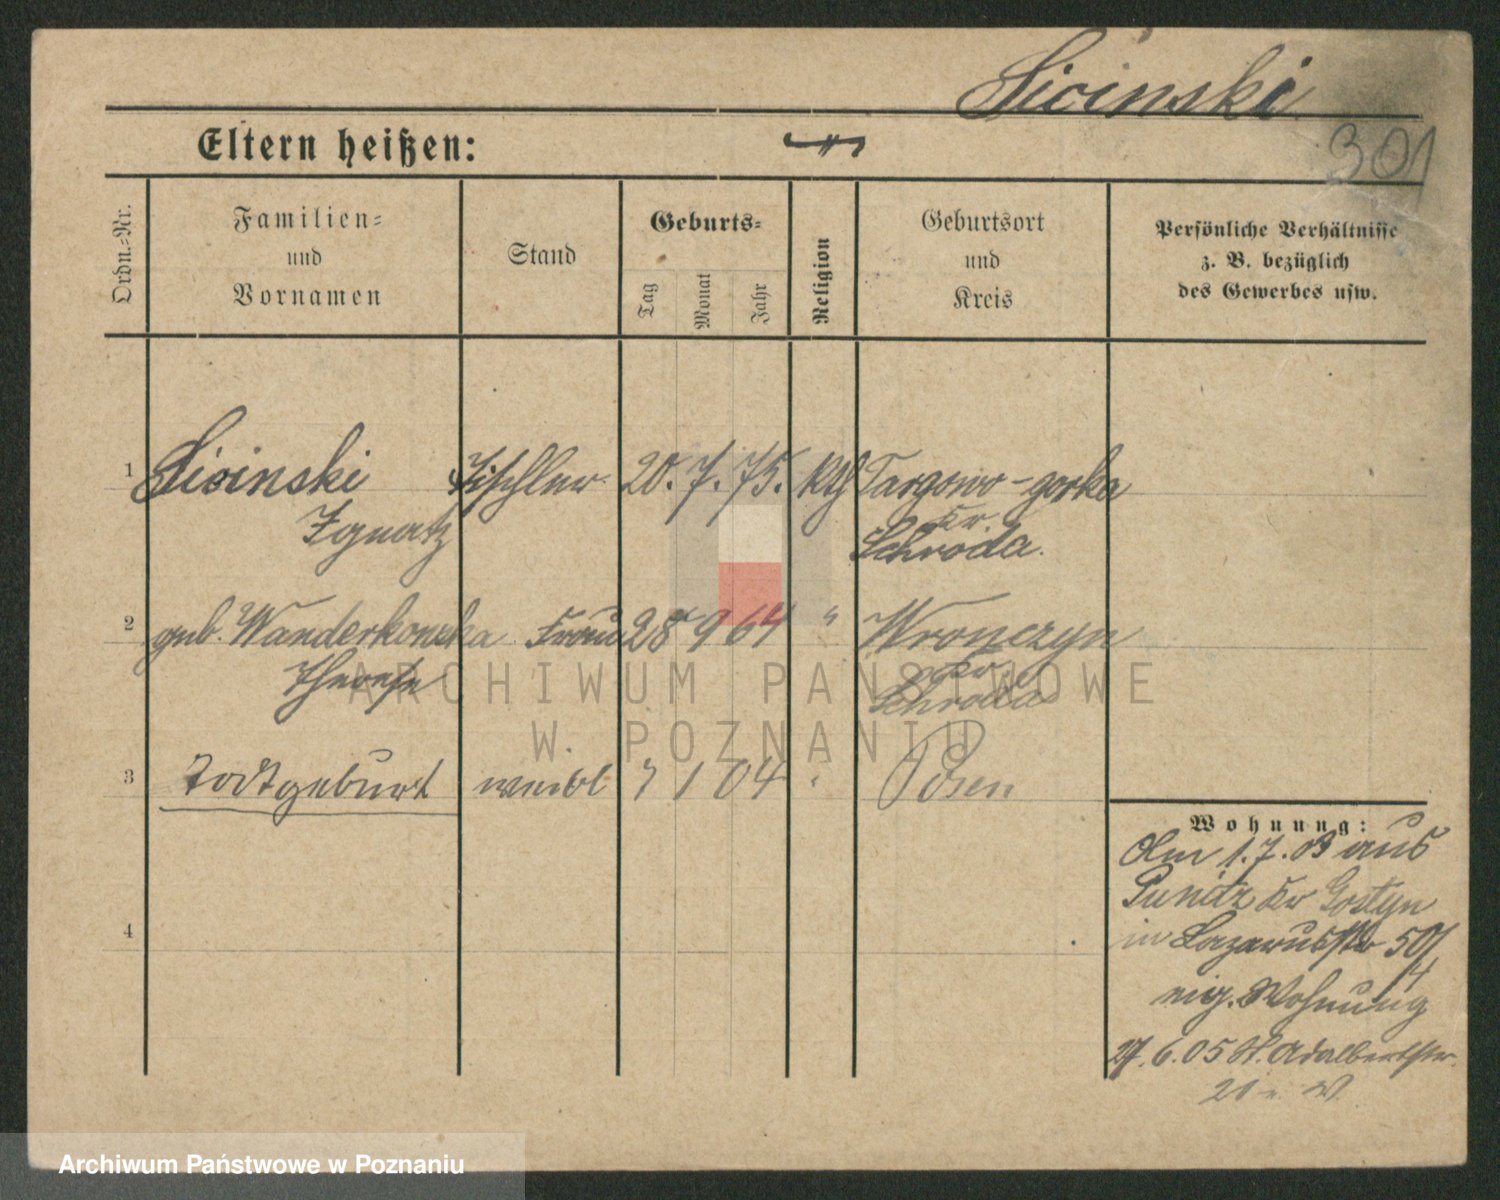 Sicinski
301
Eltern heißen:
Ordn.=Nr.
Familien=
und
Vornamen
Stand
Geburts=
Tag
Monat
Jahr
Religion
Geburtsort
und
Kreis
Persönliche Verhältnisse
z. B. bezüglich
des Gewerbes usw.
1 Sicinski Tischler 20. 7. 75. kth Targowo-gorka
Ignatz Kr.
Schroda.
2 geb. Frau 28 9 64 " Wronczyn
Therese Kr
Schroda
3 Todtgeburt weibl 7 1 04 " Posen
4
Wohnung:
Am 1.7.03 aus
Punitz Kr Gostyn
in Lazarusstr 50/
4
eig. Wohnung
27.6.05 St. Adalbertstr.
ARCHIWUM PAŃSTWOWE
W POZNANIU
Archiwum Państwowe w Poznaniu